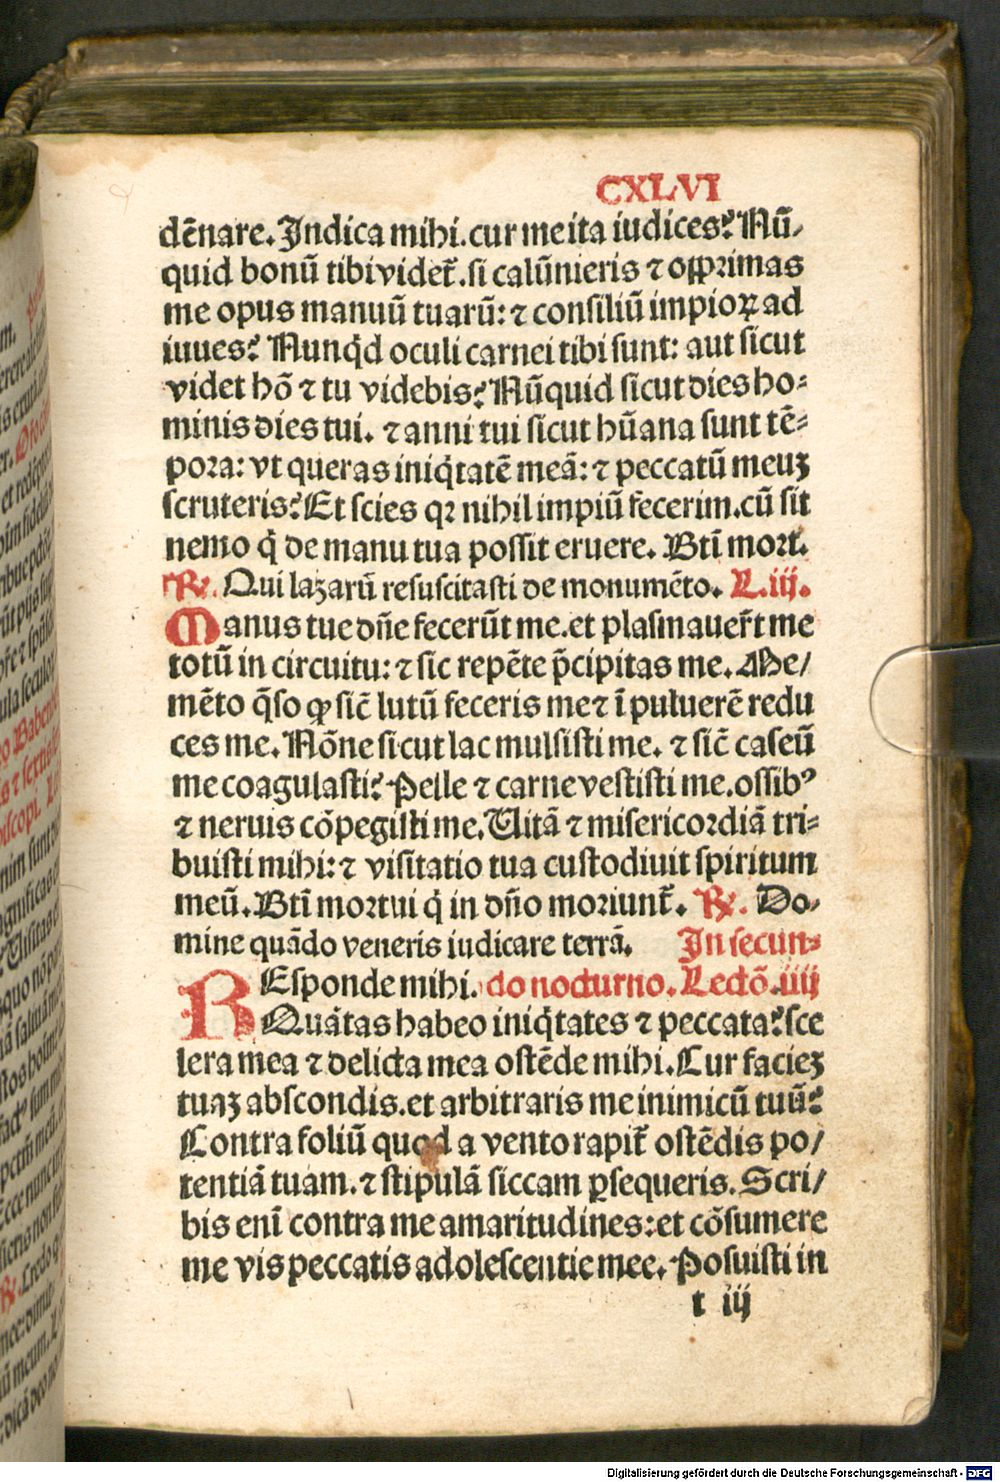 CXLVI
dēnare. Indica mihi. cur me ita iudices? Nū/
quid bonū tibi videt̄. si calūnieris ⁊ opprimas
me opus manuū tuarū: ⁊ consiliū impioꝝ ad
iuues? Nunqd̄ oculi carnei tibi sunt: aut sicut
videt hō ⁊ tu videbis? Nūquid sicut dies ho-
minis dies tui. ⁊ anni tui sicut hūana sunt tē-
pora: vt queras iniq̇tatē meā: ⁊ peccatū meuꝫ
scruteris? Et scies qꝛ nihil impiū fecerim. cū sit
nemo q̇ de manu tua possit eruere. Btī mort.
℟. Qui lazarū resuscitasti de monumēto. L.iij.
Manus tue dn̄e fecerūt me. et plasmauer̄t me
totū in circuitu: ⁊ sic repēte p̄cipitas me. Me/
mēto q̄so ꝙ sic̄ lutū feceris me ⁊ ī puluerē redu
ces me. Nōne sicut lac mulsisti me. ⁊ sic̄ caseū
me coagulasti? Pelle ⁊ carne vestisti me. ossibꝰ
⁊ neruis cōpegisti me. Uitā ⁊ misericordiā tri-
buisti mihi: ⁊ visitatio tua custodiuit spiritum
meū. Btī mortui q̇ in dn̄o moriunt̄. ℟. Do-
mine quādo veneris iudicare terrā. In secun-
REsponde mihi. do nocturno. Lectō. iiij
Quātas habeo iniq̇tates ⁊ peccata? sce
lera mea ⁊ delicta mea ostēde mihi. Cur facieꝫ
tuaꝫ abscondis. et arbitraris me inimicū tuū?
Contra foliū quod a vento rapit̄ ostēdis po/
tentiā tuam. ⁊ stipulā siccam ꝑsequeris. Scri/
bis enī contra me amaritudines: et cōsumere
me vis peccatis adolescentie mee. Posuisti in
t iij
Digitalisierung gefördert durch die Deutsche Forschungsgemeinschaft - DFG